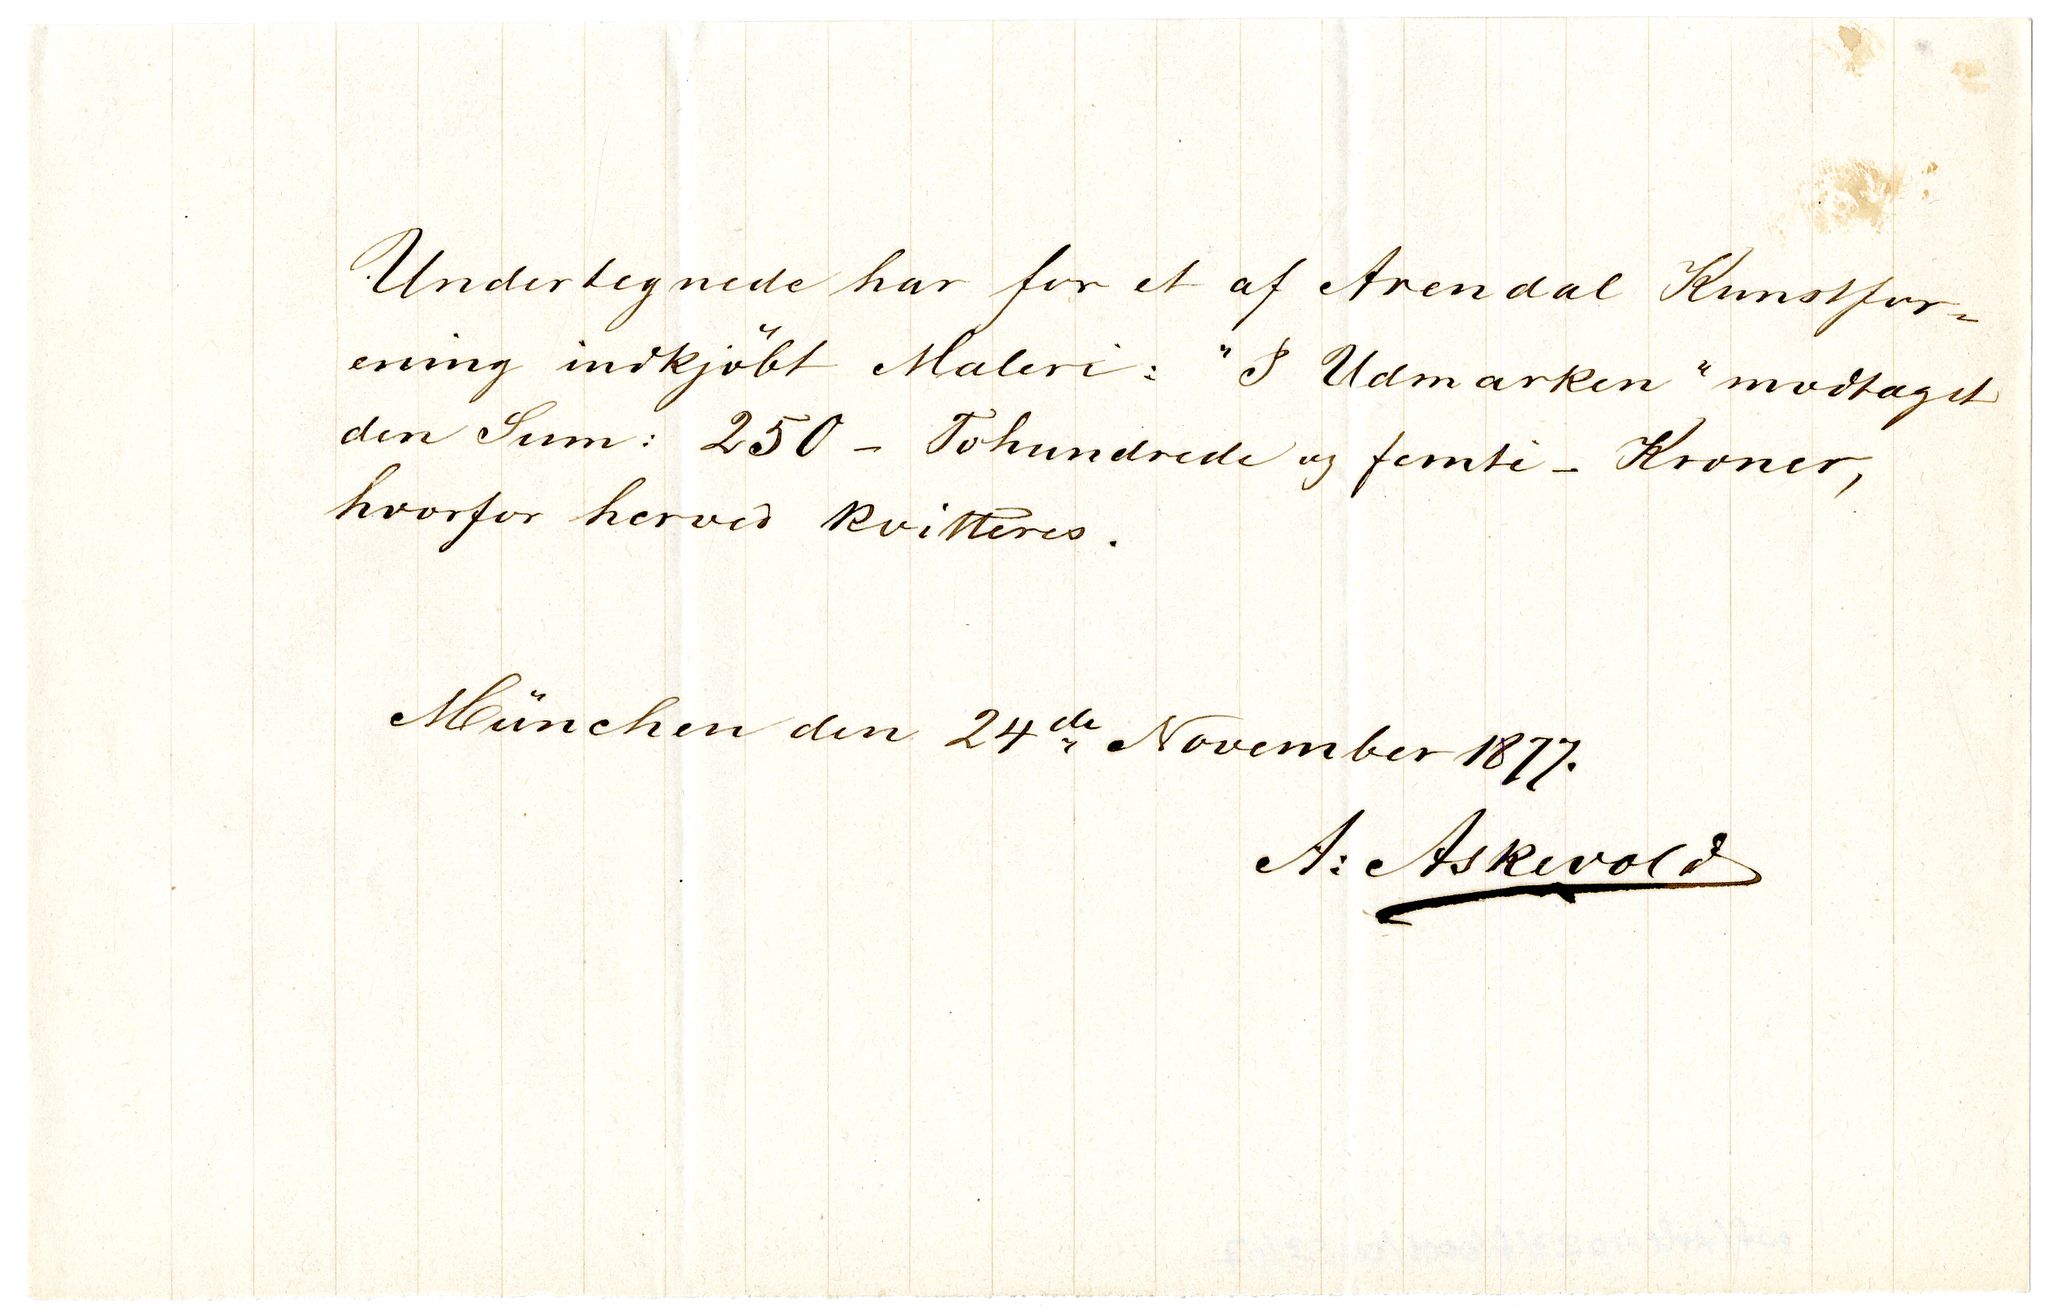 Undertegnede har for et af Arendal Kunstfor-
ening indkjöbt Maleri: "I Udmarken" modtaget
den Sum: 250 – Tohundrede og femti – Kroner,
hvorfor herved kvitteres.
München den 24de November 1877.
A: Askevold